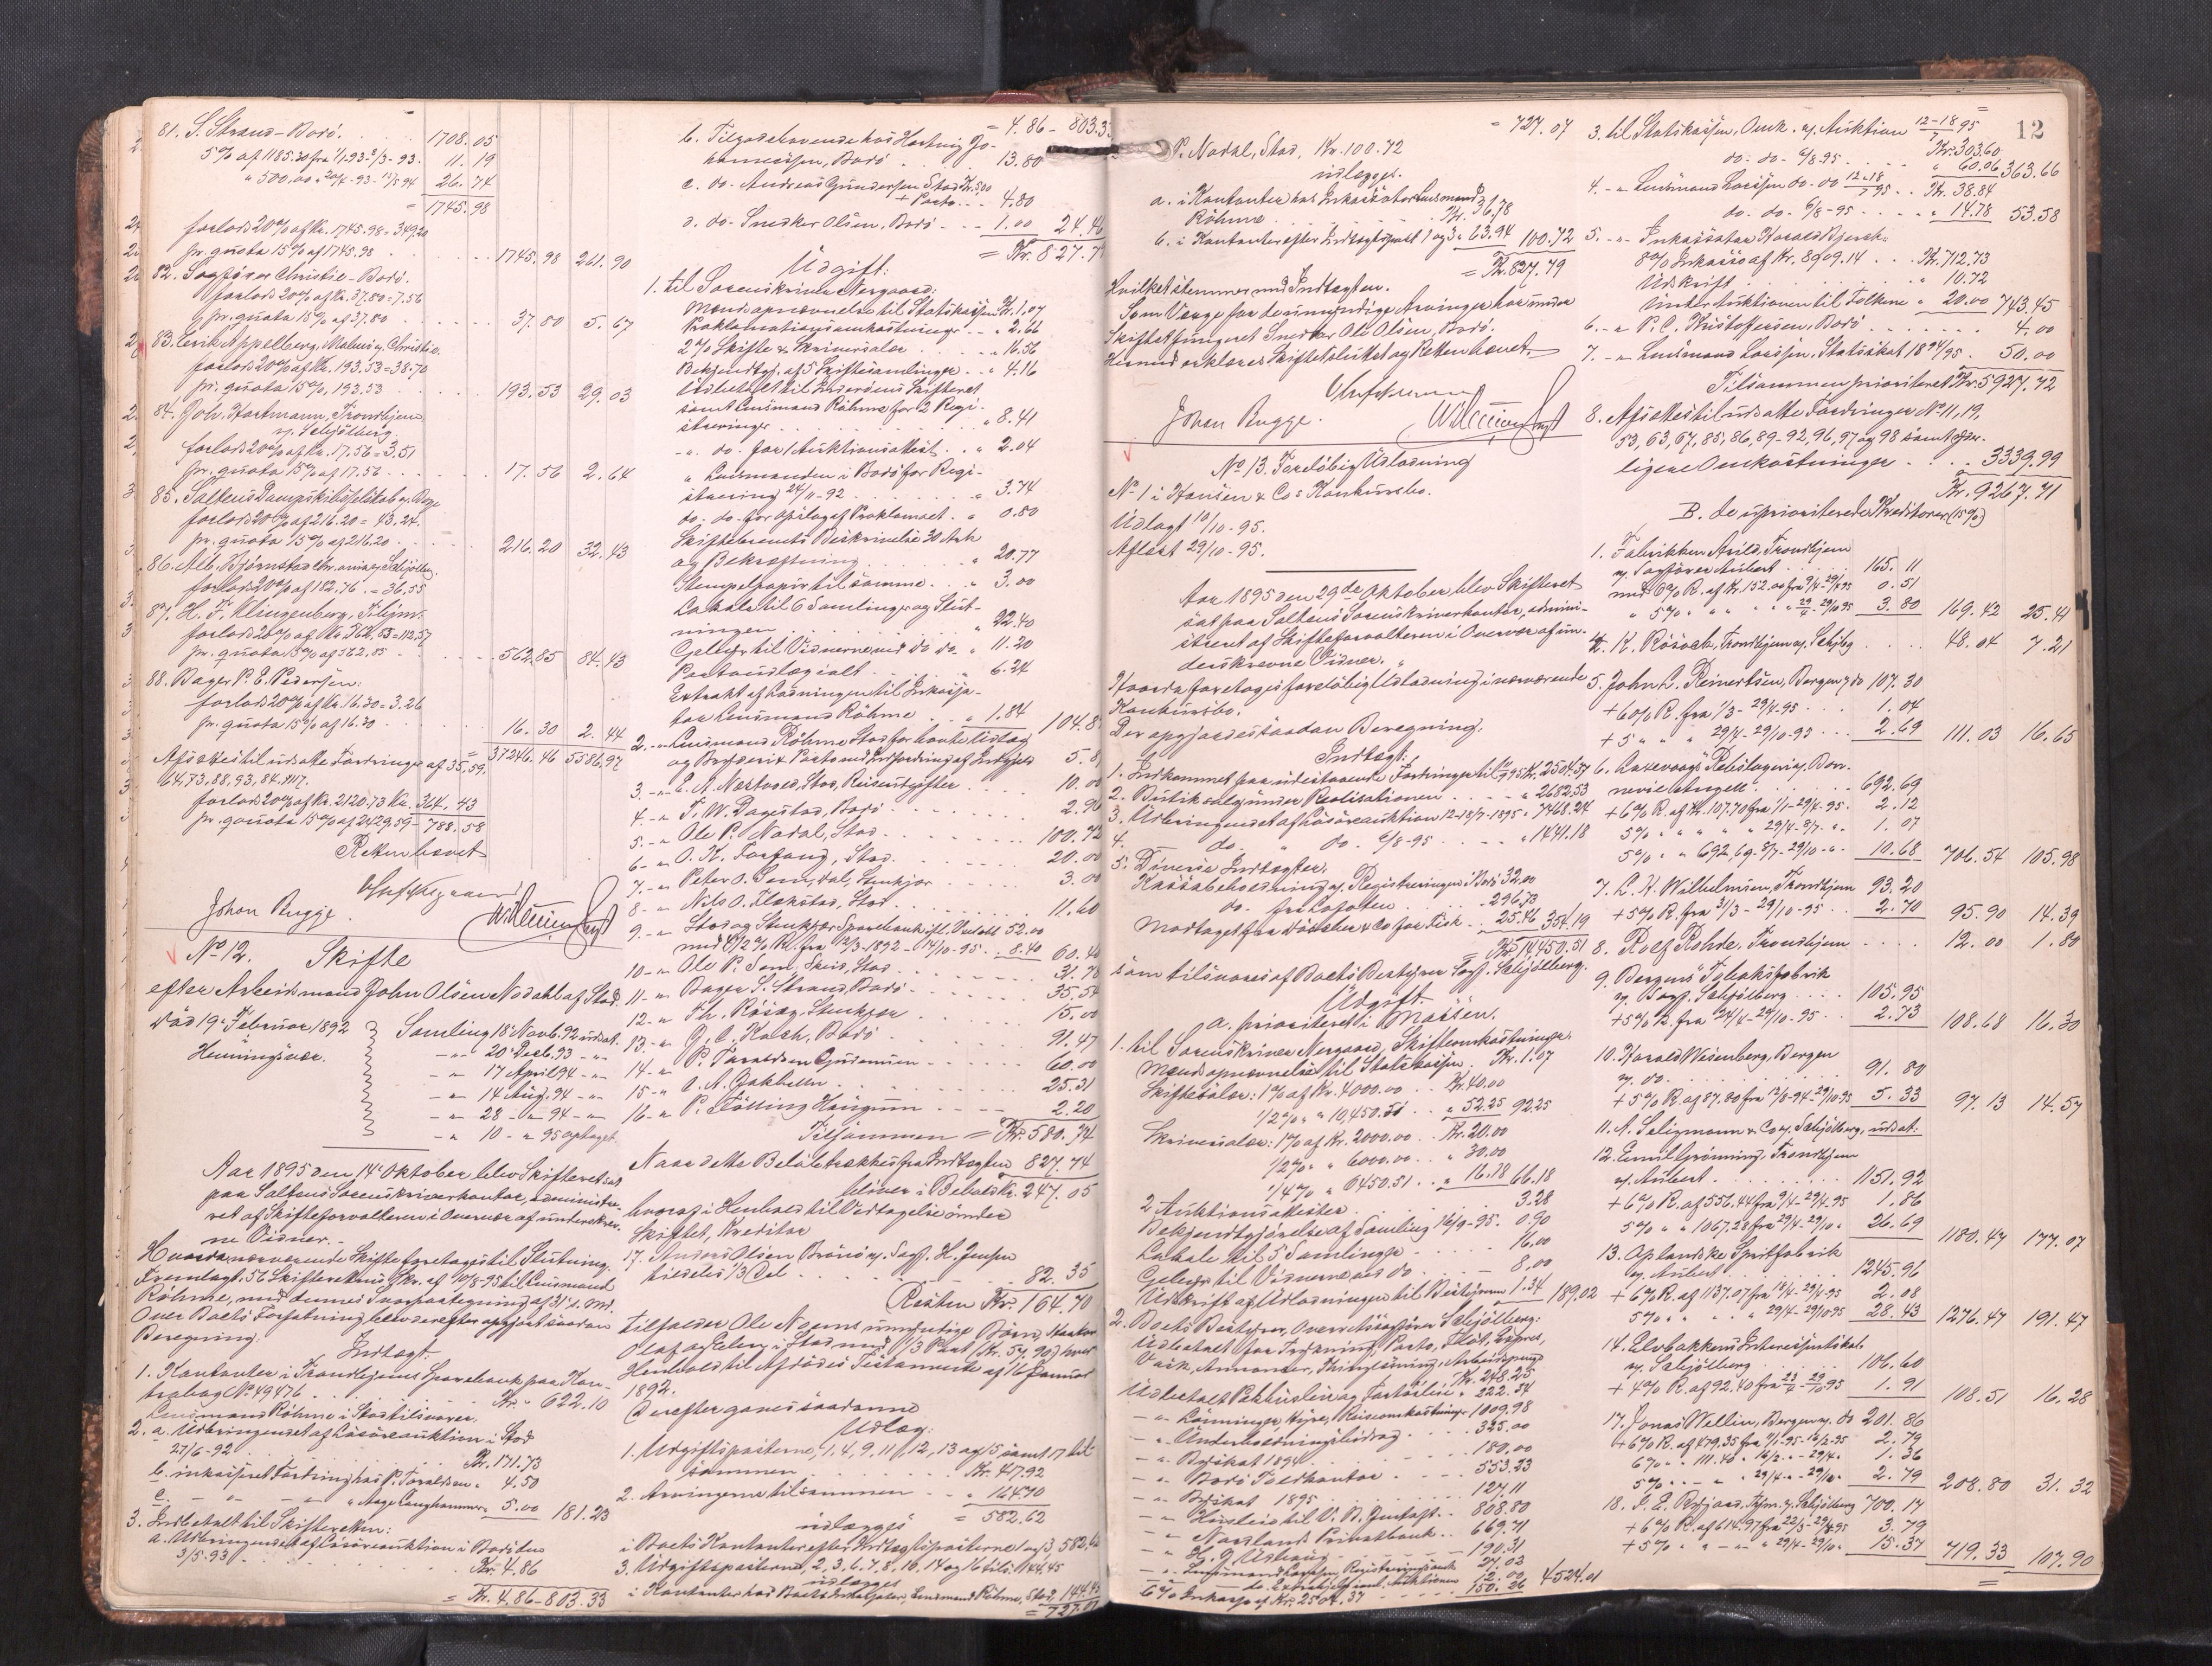 81. S. Strand - Bodö. 1708.05
5% af 1185.30 fra 1/1-93 - 3/3-93. 11.19
" 500.00 " 20/4-93 - 15/5 94 26.74
= 1745.98
forlods 20% af Kr. 1745.98 = 349.20
pr. quota 15% af 1745.98 1745.98 261.90
82. Sagförer Christie - Bodö.
forlods 20% af Kr. 37.80 = 7.56
pr. quota 15% af 37.80 37.80 5.67
83. Erik Appelberg, Malmö v. Christie.
forlods 20% af Kr. 193.53 = 38.70
pr. quota 15%, 193.53 193.53 29.03
84. Joh. Hartmann, Trondhjem,
v. Schjölberg
forlods 20% af Kr. 17.56 = 3.51
pr. quota 15% af 17.56 17.56 2.64
85. Saltens Dampskibsselskab v. Bye
forlods 20% af 216.20 = 43.24.
pr. quota 15% af 216.20 216.20 32.43
86. Alb. Björnstad v. Schjölberg.
forlods 20% af 182,76 = 36,55
87. H. F. Klingenberg, Trhjm.
forlods 20% af Kr. 562,85 = 112,57
pr. quota 15% af 562,85 562,85 84.43
88. Bager P. E. Pedersen:
forlods 20% af Kr. 16.30 = 3.26
pr. quota 15% af 16.30 16.30 2.44
= 37246.46 5586.97
Afsættes til udsatte Fordringer af 35,59.
64,73,88,93,84.
forlods 20% af Kr. 2120.73 Kr. 364.43
pr. quota 15% af 2429.59 - 788.58
Retten hævet
Johan Rugge.
No 12. Skifte
efter Arbeidsmand John Olsen Nodahl af Stod
död 19de Februar 1892
Henningsvær.
Samling 18 Novb. 92 udsat.
- " - 20 Decb. 93 - " -
- " - 17 April 94 - " -
- " - 14 Aug. 94 - " -
- " - 28 - " - 94 - " -
- " - 10 - " - 95 optaget.
Aar 1895 den 14de Oktober blev Skifteret sat
paa Saltens Sorenskriverkontor, administre-
ret af Skifteforvalteren i Overvær af underskrev-
ne Vidner. -
Hvorda nærværende Skifte foretages til Slutning.
Fremlagt: 56 Skifterettens Skr. af 10/8-95 til Lensmand
Röhme, med dennes Svarpaategning af 31 s. M.
Over Boets Forfatning blev derefter opgjort saadan
Beregning:
Indtægt:
1. Kontanter i Trondhjems Sparebank paa Kon-
trabog No 49476 Kr. 622.10
Lensmand Röhme i Stod tilsvarer.
2. a. Udbringendet af Lösöreauktion i Stod
27/6-92 Kr. 171.73
b. inkasseret Fordring hos P. Toraldsen " 4.50
c. - " - " - " Aage Langhammer " 5.00 181.23
3. Indbetalt til Skifteretten:
a. Udbringendet af Lösöreauktion i Bodö den
3/5.93 Kr. 4.86
= Kr. 4.86 - 803.33
= 4.86 - 803.33
b. Tilgodehavende hos Hartvig Jo-
hannessen, Bodö 13.80
c. do. Andreas Gundersen Stod Kr. 5,00
+ Porto 4.80
d. do. Snedker Olsen, Bodö 1.00 24.46
= Kr. 827.79
Udgift:
1. til Sorenskriver Nergaard:
Mændsopnævnelse til Statskassen Kr. 1.07
Proklamationsomkostninger " 2.66
2% Skifte & Skriversalær " 16.56
Bekjendtgj. af 5 Skiftesamlinger " 4.16
Udbetalt til Inderöens Skifteret
samt Lensmand Röhme for 2 Regi-
streringer " 8.41
- " - do. for Auktionsattest " 2.04
" Lensmanden i Bodö for Regi-
strering 24/11-92 " 3.74
do. do. for Opslag af Proklamaet " 0.80
Skiftebrevets Beskrivelse 30 Ark
og Bekræftning " 20.77
Stempelpapir til samme " 3.00
Lokale til 6 Samlinger og Slut-
ningen " 22.40
Gebyr til Vidnerne ved do do " 11.20
Portoudlæg ialt " 6.24
Extrakt af Lodningen til Inkassa-
tor Lensmand Röhme " 1.84 104.8
2. - " Lensmand Röhme Stod for havte Udlæg
og Bryderi & Porto ved Indfordring af Indtægter 5.8
3. - " E. A. Nostvold, Stod, Reiseudgifter 10.00
4. - " F. W. Dagestad, Bodö 2.96
5. - " Ole P. Nodal, Stod 100.72
6. - " O. K. Forfang, Stod 20.00
7. - " Peter O. Sem, dal, Stenkjær 3.00
8. - " Nils O. Flekstad, Stod 11.60
9. - " Stod og Stenkjær Sparebank ifl. Vexel 52.00
med 4 1/2% R. fra 12/3-1892 - 14/10-95 8.40 60.40
10 - " Ole P. Sem, Skeid, Stod 31.70
11 - " Bager S. Strand, Bodö 35.54
12 - " Th. Rösæg, Stenkjær 15.00
13 - " J. C. Koch, Bodö 91.47
14 - " P. Toraldsen Gjæsum 60.00
15 - " A. A. Bakkeli 25.31
16 - " P. Fölling Haugum 2.20
Tilsammen = Kr. 580.74
Naar dette Belöb trækkes fra Indtægten 827.79
bliver i Behold Kr. 247.05
hvoraf i Henhold til Vedtagelse under
Skiftet, Kreditor
17. Anders Olsen Brönö v. Sagf. H. Jensen
tildeles 1/3 Del 82.35
Resten Kr. 164.70
tilfalder Ole Naems umyndige Börn, Haakon,
Olaf og Edevg i Stod med 1/3 Part (Kr. 54,90) hver
Henhold til Afdödes Testamente af 16 Januar
1892.
Derefter gaves saadanne
Udlæg:
1. Udgiftsposterne, 1, 4, 9, 11, 12, 13 og 15 samt 17 til
sammen Kr. 417.92
2. Arvingerne tilsammen " 164.70
udlægges = 582.62
i Boets Kontanter efter Indtægtsposterne 1 og 3 582.62
3. Udgiftsposterne, 2, 3, 6, 7, 8, 10, 14 og 16 tils. 144.45
udlægges
i Kontanter hos Boets Inkassator, Lensmand Röhme, Stod 144.45
= 727.07
12
= 727.07
P. Nodal, Stod, Kr. 100.72
udlægges.
a. i Kontanter hos Inkassator Lensmand
Röhme Kr. 36.78
b. i Kontanter efter Indtægtspost 1 og 3 " 63.94 100.72
= Kr. 827.79
Hvilket stemmer med Indtægten.
Som Værge for de umyndige Arvinger har under
Skiftet fungeret Snedker Ole Olsen, Bodö.
Hermed erklæres Skiftet sluttet og Retten hævet.
Johan Rugge.
No 13. Foreløbig Udlodning
No 1 i Hansen & Co's Konkursbo.
Udlagt 18/10-95.
Aflæst 29/10-95.
Aar 1895 den 29de Oktober blev Skifteret
sat paa Saltens Sorenskriverkontor, admini-
streret af Skifteforvalteren i Overvær af un-
derskrevne Vidner.
Hvorda foretages foreløbig Udlodning i nærværende
Konkursbo.
Der opgjordes saadan Beregning.
Indtægt:
1. Indkommet paa udestaaende Fordringer til 95 Kr. 2504.37
2. Butiksalg under Realisationen " 2682.53
3. Udbringendet af Lösöreauktion 12-18/7-1895 " 7468.24
4. do. " do. 6/8-95 " 1441.18
5. Diverse Indtægter.
Kassabeholdning v. Registreringen i Bodö 32.00
do. fra Lofoten 296.73
Modtaget fra & Co for Fisk 25.46 354.19
= Kr. 14,450.51
som tilsvares af Boets Bestyrer Sagf. Schjölberg.
Udgift.
A. prioriteret i Massen.
1. til Sorenskriver Nergaard, Skifteomkostninger.
Mændsopnævnelse til Statskassen Kr. 1.07
Skiftesalær: 1% af Kr. 4000.00 Kr. 40.00
1/2% " " 10,450.51 " 52.25 92.25
Skriversalær: 1% af Kr. 2000.00 Kr. 20.00
1/2% " " 6000.00 " 30.00
1/4% " 6450.51 " 16.18 66.18
2 Auktionsattester 3.28
Bekjendtgjörelse af Samling 16/9-95. 0.90
Lokale til 5 Samlinger 16.00
Gebyr til Vidnerne ved do 8.00
Udskrift af Udlodningen til Bestyreren 1.34 189.02
2. Boets Bestyrer, Overretssagförer Schjölberg:
Udbetalt for Trykning, Porto, Flöt, Expres,
Vask, Annoncer, Thinglæsning, Arbeidspenge
Kr. 248.25
Udbetalt Pakhusleie og Fartöileie " 222.34
- " - Lönninger, Hyre, Reiseomkostninger 1009.98
- " - Underholdningsbidrag 325.00
- " - Byskat 1894 180.00
- " - Bodö Toldkontor 553.23
- " - Byskat 1895 127.11
- " - Husleie til V. B. Gustafs 808.80
- " - Nordlands Privatbank 669.71
- " - H. J. Ursberg 190.31
- " - Lensmand Larssen, Registrering 27.02
- " - do. Extrahjælp ved Auktionen 12.00
6% Inkasso af Kr. 2504.37 150.26 4524.01
3. til Statskassen, Omk. v. Auktion 12-18/7 95
Kr. 303.60
do. do. 6/8-95 " 60.06 363.66
4. - " Lensmand Larssen do. do 12-18/7 95 Kr. 38.84
do. do. 6/8-95 " 14.78 53.58
5. - " - Inkassator Harald Bjerck:
8% Inkasso af Kr. 8909.14 Kr. 712.73
Udskrift 10.72
under Auktionen til Folkene " 20.00 743.45
6. - " P. C. Kristoffersen, Bodö 4.00
7. - " Lensmand Larssen, Statsskat 1894/95 50.00
Tilsammen prioriteret Kr. 5927.72
8. Afsættes til udsatte Fordringer No 11, 19,
53, 63, 67, 85, 86, 89-92, 96, 97 og 98 samt yder-
ligere Omkostninger 3339.99
Kr. 9267.71
B. de uprioriterede Kreditorer (15%)
1. Fabrikken Arild, Trondhjem
v. Sagförer Aubert 165.11
med 6% R. af Kr. 152.00 fra 9/4-29/4 95 0.51
" 5% " " " " 29/4-29/10 95 3.80 169.42 25.41
4. K. Rösvek, Trondhjem v. Schjbg 48.04 7.21
5. John L. Reinertsen, Bergen v do 107.30
+ 6% R. fra 1/3-29/4-95 1.04
+ 5 " " " 29/4-29/10-95 2.69 111.03 16.65
6. Laxevaags Rebslageri v. Bon-
nevie Angell 692.69
+ 6% R. af Kr. 107.70 fra 1/1-29/4-95 2.12
5% " " " " " 29/4-8/7- " - 1.07
5% " " 692.69 - 8/7-29/10- " - 10.68 706.54 105.98
7. L. H. Wilhelmsen, Trondhjem 93.20
+ 5% R. fra 31/3-29/10-95 2.70 95.90 14.39
8. Rolf Rohde, Trondhjem 12.00 1.80
9. Bergens Tobaksfabrik
v. Sagf. Schjölberg 105.95
+ 5% R. fra 24/4-29/10-95 2.73 108.68 16.30
10. Harald Wesenberg, Bergen
v. do. 91.80
+ 5% R. af 87.80 fra 12/8-94-29/10-95 5.33 97.13 14.57
11. A. Seligmann & Co v. Schjölberg, udsat:
12. Emil Grönning, Trondhjem
v. Aubert 1151.92
+ 6% R. af 556.44 fra 9/4-29/4-95 1.86
5% " " 1067.28 fra 29/4-29/10 " 26.69 1180.47 177.07
13. Oplandske Spritfabrik
v. Aubert 1245.96
+ 6% R. af 1137.07 fra 18/4-29/4-95 2.08
5% " " " " 29/4-29/10 95 28.43 1276.47 191.47
14. Elvebakkens Interessentskab
v. Schjölberg 106.60
+ 4% R. af 92.40 fra 23/4-29/10 95 1.91 108.51 16.28
17. Jonas Wellin, Bergen v. do 201.86
+ 6% R. af 479.35 fra 9/1-95-16/2-95 2.79
6% " " 111.40 " 16/2- " - 29/4- " 1.36
5% " - " - " 29/4- " - 29/10 " 2.79 208.80 31.32
18. J. L. Bojesen, Thjm. v. Schjölberg 700.17
+ 6% R. af 614.97 fra 22/3-29/4-95 3.79
+ 5% " " - " - " 29/4-29/10 " 15.37 719.33 107.90